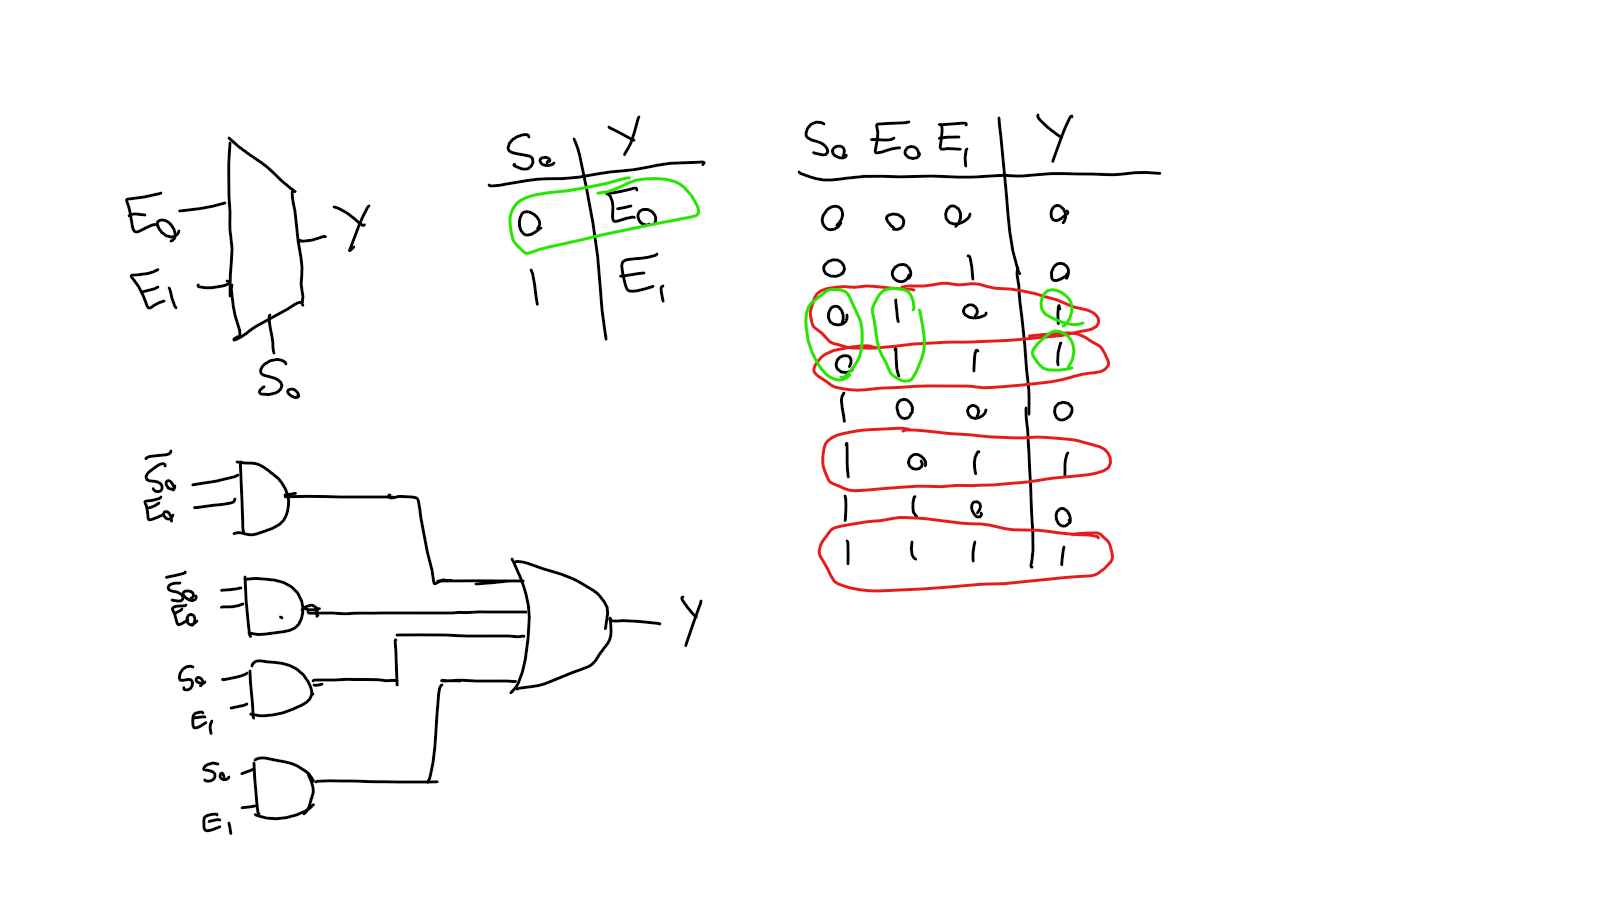 E₀
E₁
Y
S₀
S₀ Y
0 E₀
1 E₁
S₀ E₀ E₁ Y
0 0 0 0
0 0 1 0
0 1 0 1
0 1 1 1
1 0 0 0
1 0 1 1
1 1 0 0
1 1 1 1
S̅₀
E₀
S̅₀
E₀
S₀
E₁
S₀
E₁
Y